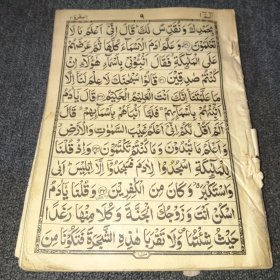 ٩
بِحَمْدِكَ وَنُقَدِّسُ لَكَ قَالَ اِنِّیْ اَعْلَمُ مَا لَا
تَعْلَمُوْنَ وَعَلَّمَ اٰدَمَ الْاَسْمَآءَ كُلَّهَا ثُمَّ عَرَضَهُمْ
عَلَی الْمَلٰٓئِكَةِ فَقَالَ اَنْۢبِـُٔوْنِیْ بِاَسْمَآءِ هٰٓؤُلَآءِ اِنْ
كُنْتُمْ صٰدِقِیْنَ قَالُوْا سُبْحٰنَكَ لَا عِلْمَ لَنَاۤ اِلَّا
مَا عَلَّمْتَنَا اِنَّكَ اَنْتَ الْعَلِیْمُ الْحَكِیْمُ قَالَ یٰۤاٰدَمُ
اَنْۢبِئْهُمْ بِاَسْمَآئِهِمْ فَلَمَّاۤ اَنْۢبَاَهُمْ بِاَسْمَآئِهِمْ قَالَ
اَلَمْ اَقُلْ لَّكُمْ اِنِّیْۤ اَعْلَمُ غَیْبَ السَّمٰوٰتِ وَالْاَرْضِ
وَاَعْلَمُ مَا تُبْدُوْنَ وَمَا كُنْتُمْ تَكْتُمُوْنَ وَاِذْ قُلْنَا
لِلْمَلٰٓئِكَةِ اسْجُدُوْا لِاٰدَمَ فَسَجَدُوْۤا اِلَّاۤ اِبْلِیْسَ اَبٰی
وَاسْتَكْبَرَ وَكَانَ مِنَ الْكٰفِرِیْنَ وَقُلْنَا یٰۤاٰدَمُ
اسْكُنْ اَنْتَ وَزَوْجُكَ الْجَنَّةَ وَكُلَا مِنْهَا رَغَدًا
حَیْثُ شِئْتُمَا وَلَا تَقْرَبَا هٰذِهِ الشَّجَرَةَ فَتَكُوْنَا مِنَ